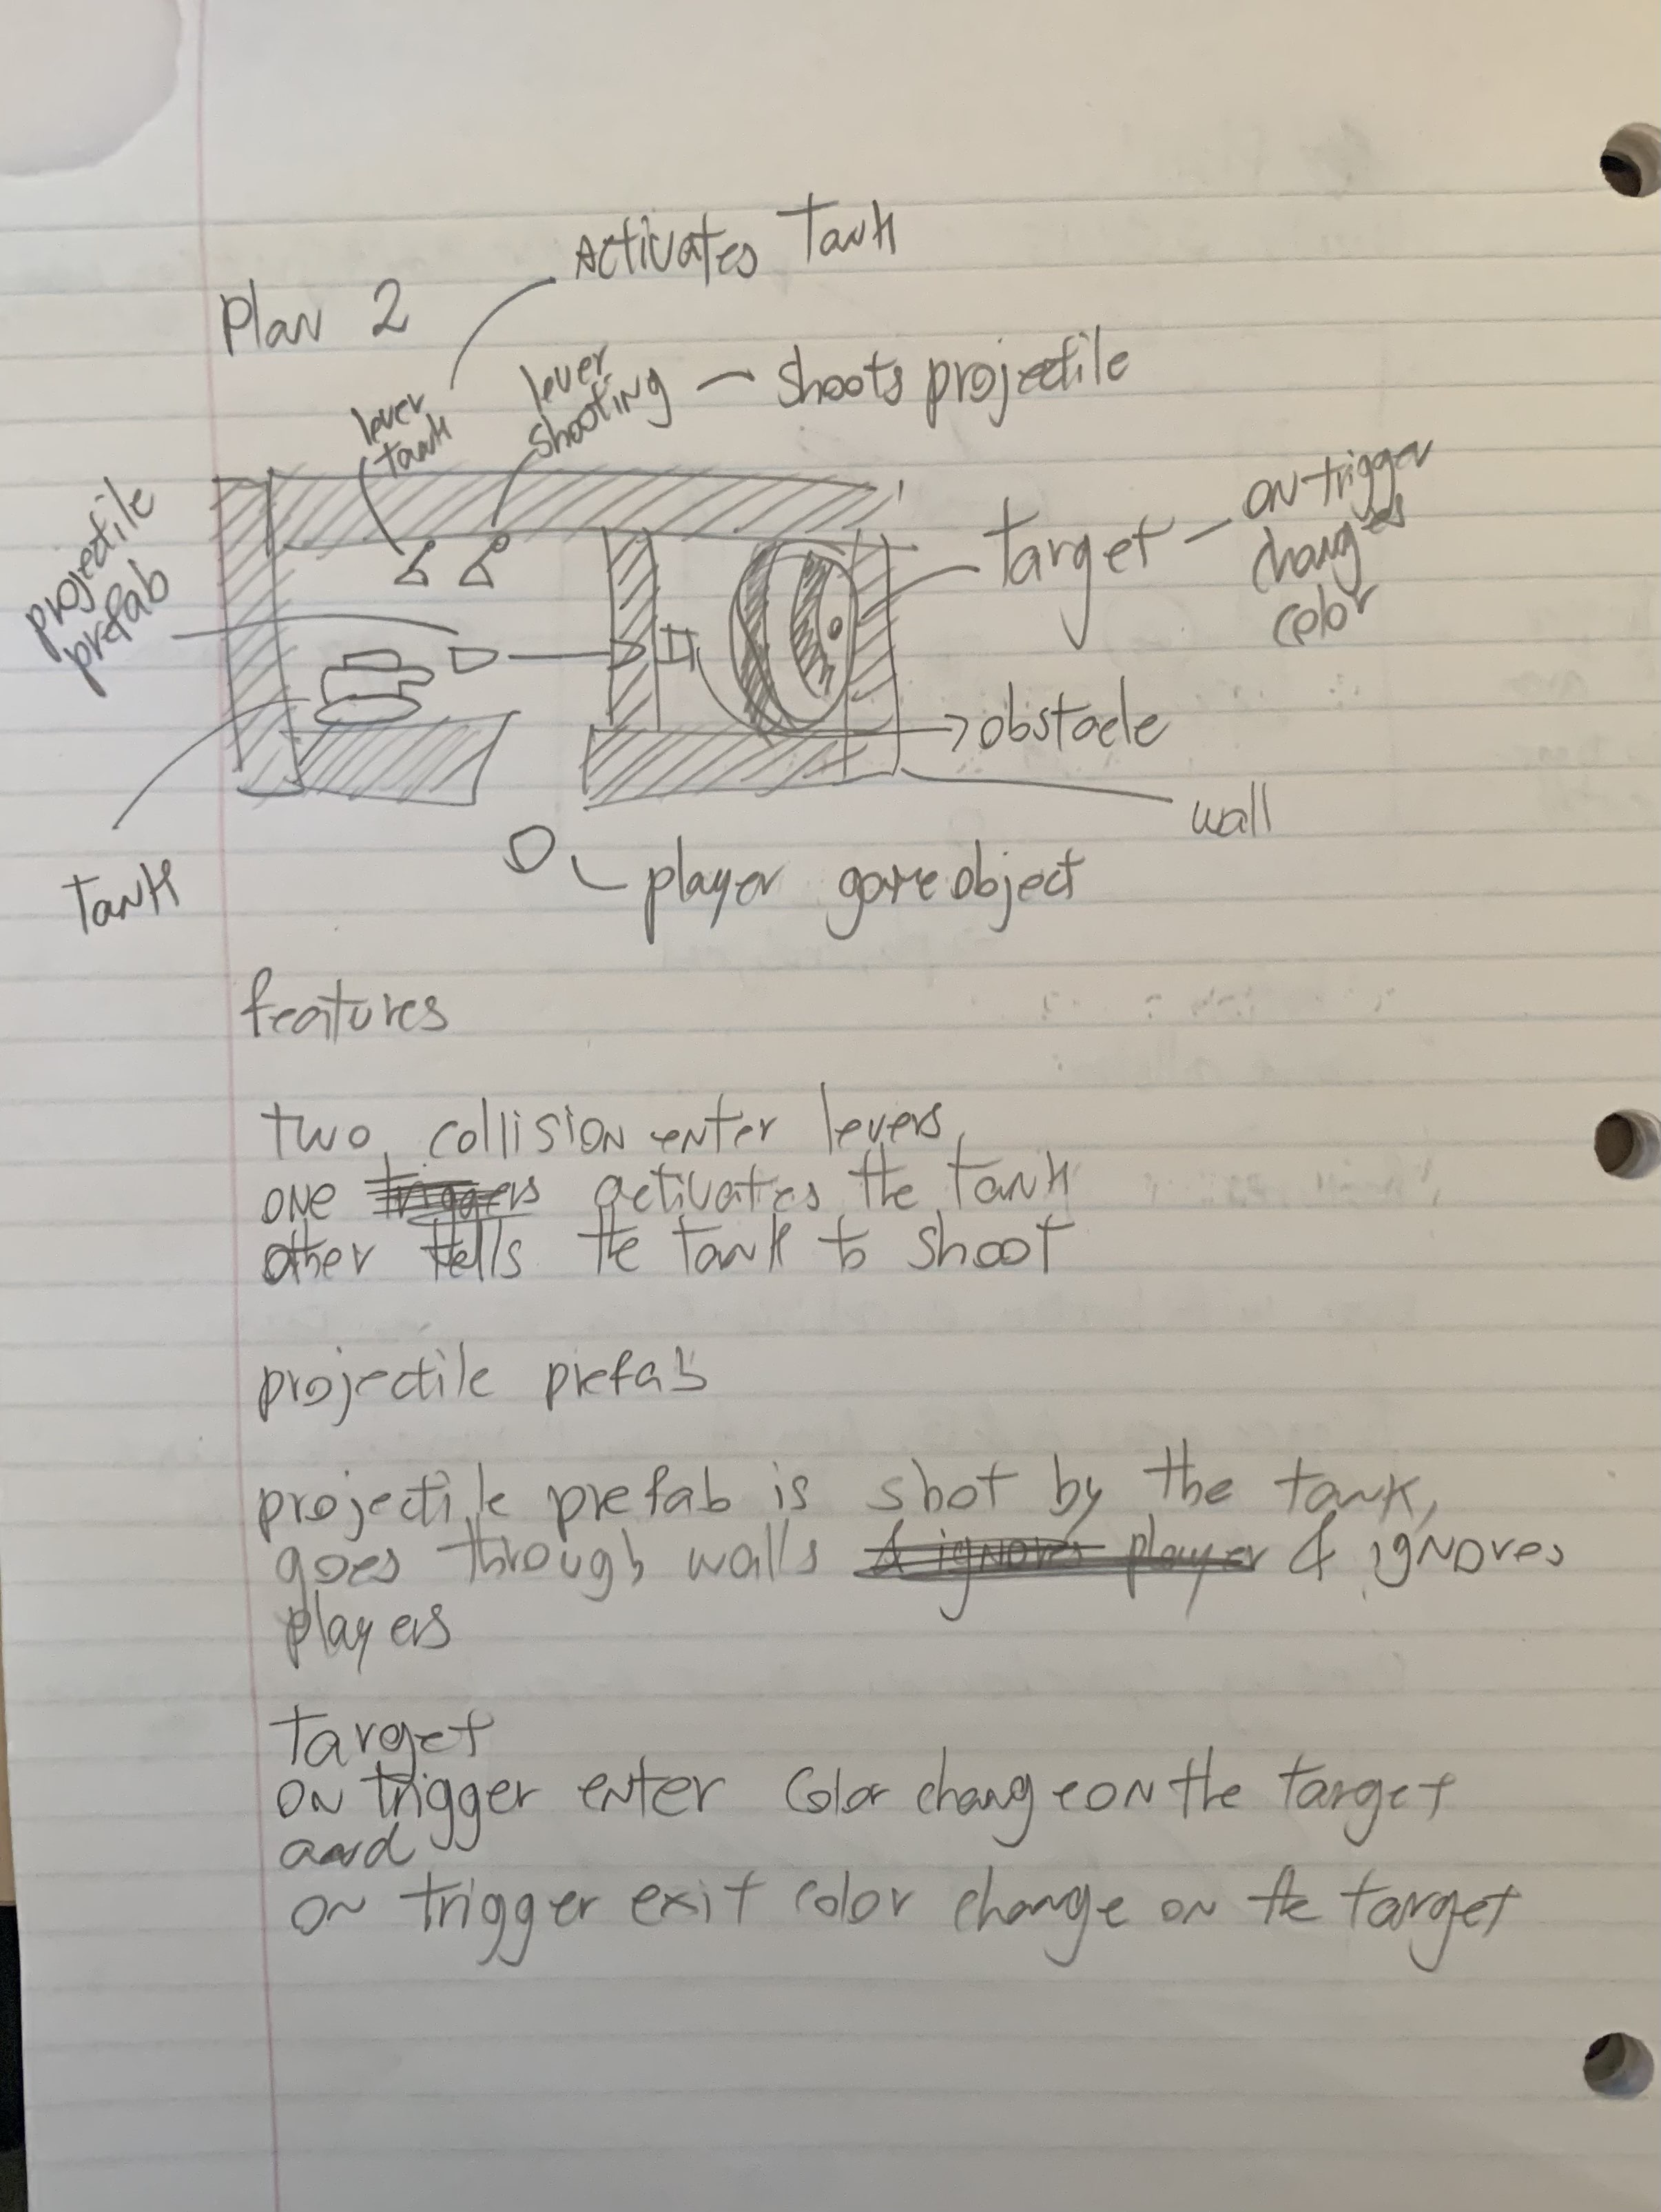 Plan 2
Activates Tank
lever
tank
lever
shooting – shoots projectile
projectile
prefab
Target – on trigger
changes
color
obstacle
wall
Tank
player gameobject
features
two collision enter levers,
one triggers activates the tank
other tells the tank to shoot
projectile prefab
projectile prefab is shot by the tank,
goes through walls & ignores player & ignores
players
Target
on trigger enter color change on the target
and
on trigger exit color change on the target